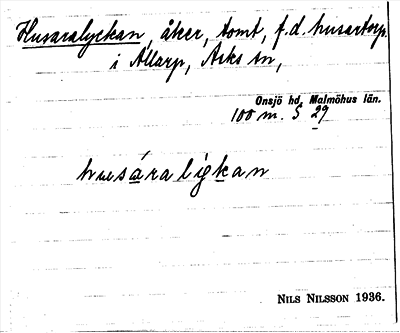 Husaralyckan, åker, tomt, f.d. husartorp
i Allarp, Asks sn,
Onsjö hd, Malmöhus län.
100 m. S 29
husáraligkan
NILS NILSSON 1936.